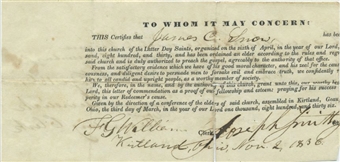 TO WHOM IT MAY CONCERN:
THIS Certifies that James C. Snow has been
into this church of the Latter Day Saints, organized on the sixth of April, in the year of our Lord,
sand, eight hundred, and thirty, and has been ordained an elder according to the rules and regu
said church and is duly authorized to preach the gospel, agreeably to the authority of that office.
From the satisfactory evidence which we have of his good moral character, and his zeal for the cause
ousness, and diligent desire to persuade men to forsake evil and embrace truth, we confidently
him to all candid and upright people, as a worthy member of society.
We, therefore, in the name, and by the authority of this church, grant unto this, our worthy
Lord, this letter of commendation as a proof of our fellowship and esteem: praying for his success
perity in our Redeemer's cause.
Given by the direction of a conference of the elders of said church, assembled in Kirtland, Geau
Ohio, the third day of March, in the year of our Lord one thousand, eight hundred and thirty six.
F G Williams Clerk. Joseph Smith
Kirtland, Ohio, Nov. 2, 1836